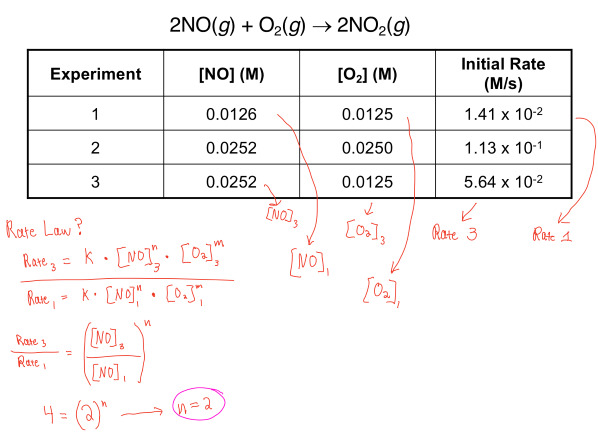 2NO(g) + O₂(g) → 2NO₂(g)
Experiment [NO] (M) [O₂] (M) Initial Rate (M/s)
1 0.0126 0.0125 1.41 x 10⁻²
2 0.0252 0.0250 1.13 x 10⁻¹
3 0.0252 0.0125 5.64 x 10⁻²
[NO]₃ [O₂]₃ Rate 3 Rate 1
[NO]₁ [O₂]₁
Rate Law?
Rate₃ = K · [NO]₃ⁿ · [O₂]₃ᵐ
Rate₁ = K · [NO]₁ⁿ · [O₂]₁ᵐ
Rate₃ / Rate₁ = ([NO]₃ / [NO]₁)ⁿ
4 = (2)ⁿ → n = 2